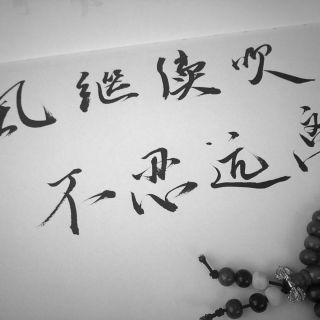 风继续吹
不忍远离